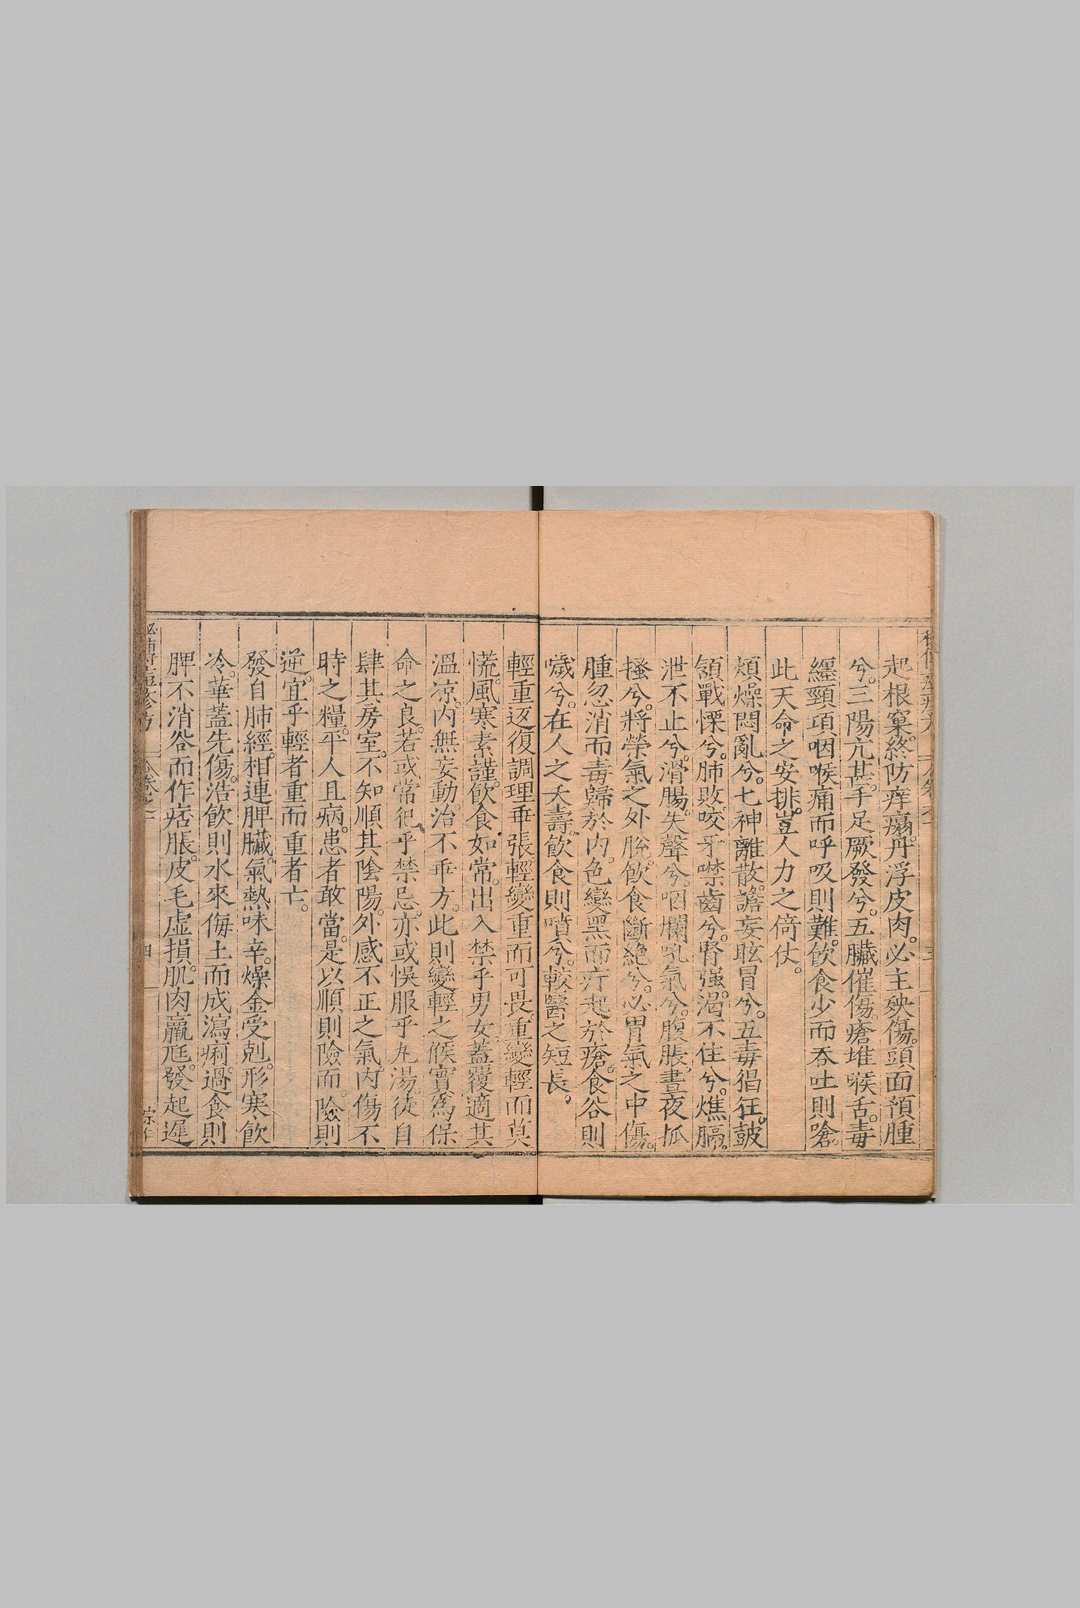 起根窠。終防痒瘍。丹浮皮肉。必主殃傷。頭面預腫
兮。三陽亢甚。手足厥發兮。五臟催傷。瘡堆喉舌。毒
纏頸項。咽喉痛而呼吸則難。飲食少而吞吐則嗆。
此天命之安排。豈人力之倚仗。
煩燥悶亂兮。七神離散。譫妄眩冒兮。五毒猖狂。鼓
頷戰慄兮。肺敗。咬牙噤齒兮。腎强。渴不住兮。燋膈。
泄不止兮。滑腸。失聲兮。咽爛。吼氣兮。腹脹。晝夜抓
搔兮。將榮氣之外脫。飲食斷絕兮。必胃氣之中傷。
腫忽消而毒歸於內。色變黑而疔起於瘡。食谷則
噦兮。在人之夭壽。飲食則噴兮。較醫之短長。
輕重返復。調理乖張。輕變重而可畏。重變輕而莫
慌。風寒素謹。飲食如常。出入禁乎男女。蓋覆適其
溫凉。內無妄動。治不乖方。此則變輕之候。實為保
命之良。若或常犯乎禁忌。亦或悞服乎丸湯。徒自
肆其房室。不知順其陰陽。外感不正之氣。內傷不
時之糧。平人且病。患者敢當。是以順則險而。險則
逆。宜乎輕者重而重者亡。
發自肺經。相連脾臟。氣熱味辛。燥金受剋。形寒飲
冷。華蓋先傷。浩飲則水來侮土而成瀉痢。過食則
脾不消谷而作痞脹。皮毛虛損。肌肉羸尫。發起遲
四